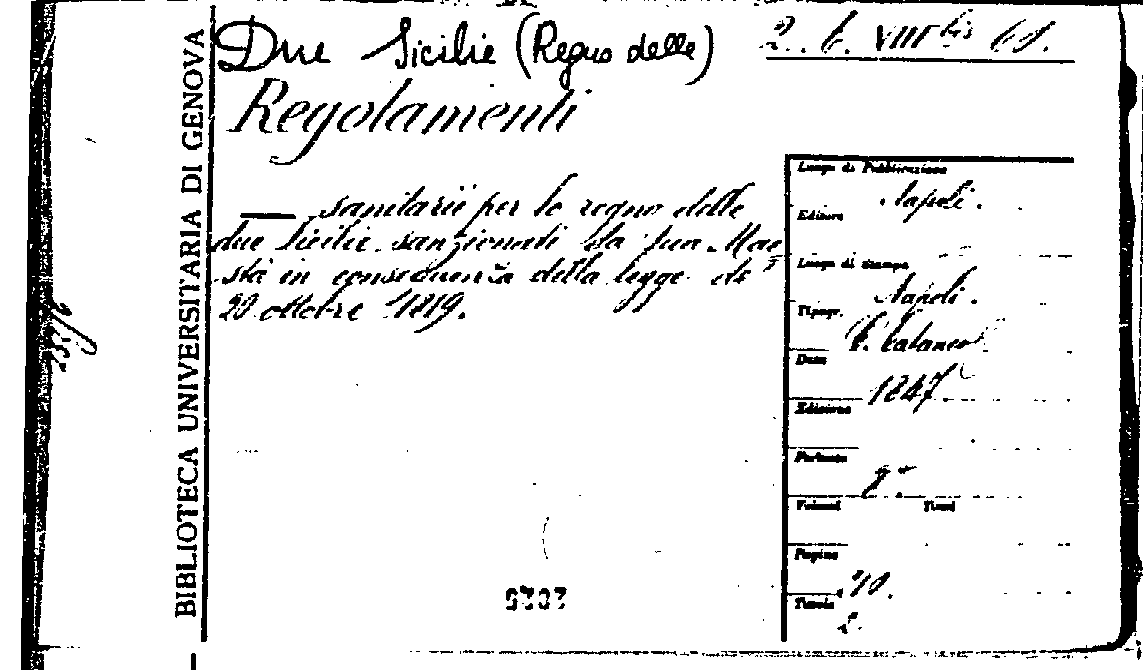 Due Sicilie (Regno delle)
2. C. VIII bis 61.
Regolamenti
— sanitarii per lo regno delle
due Sicilie sanzionati da sua Mae
stà in conseguenza della legge de'
20 ottobre 1819.
BIBLIOTECA UNIVERSITARIA DI GENOVA
Luogo di Pubblicazione
Napoli.
Editore
Luogo di Stampa
Napoli.
Tipogr.
Data
1847
Edizione
Formato
8º
Volumi Tomi
Pagine
Tavole